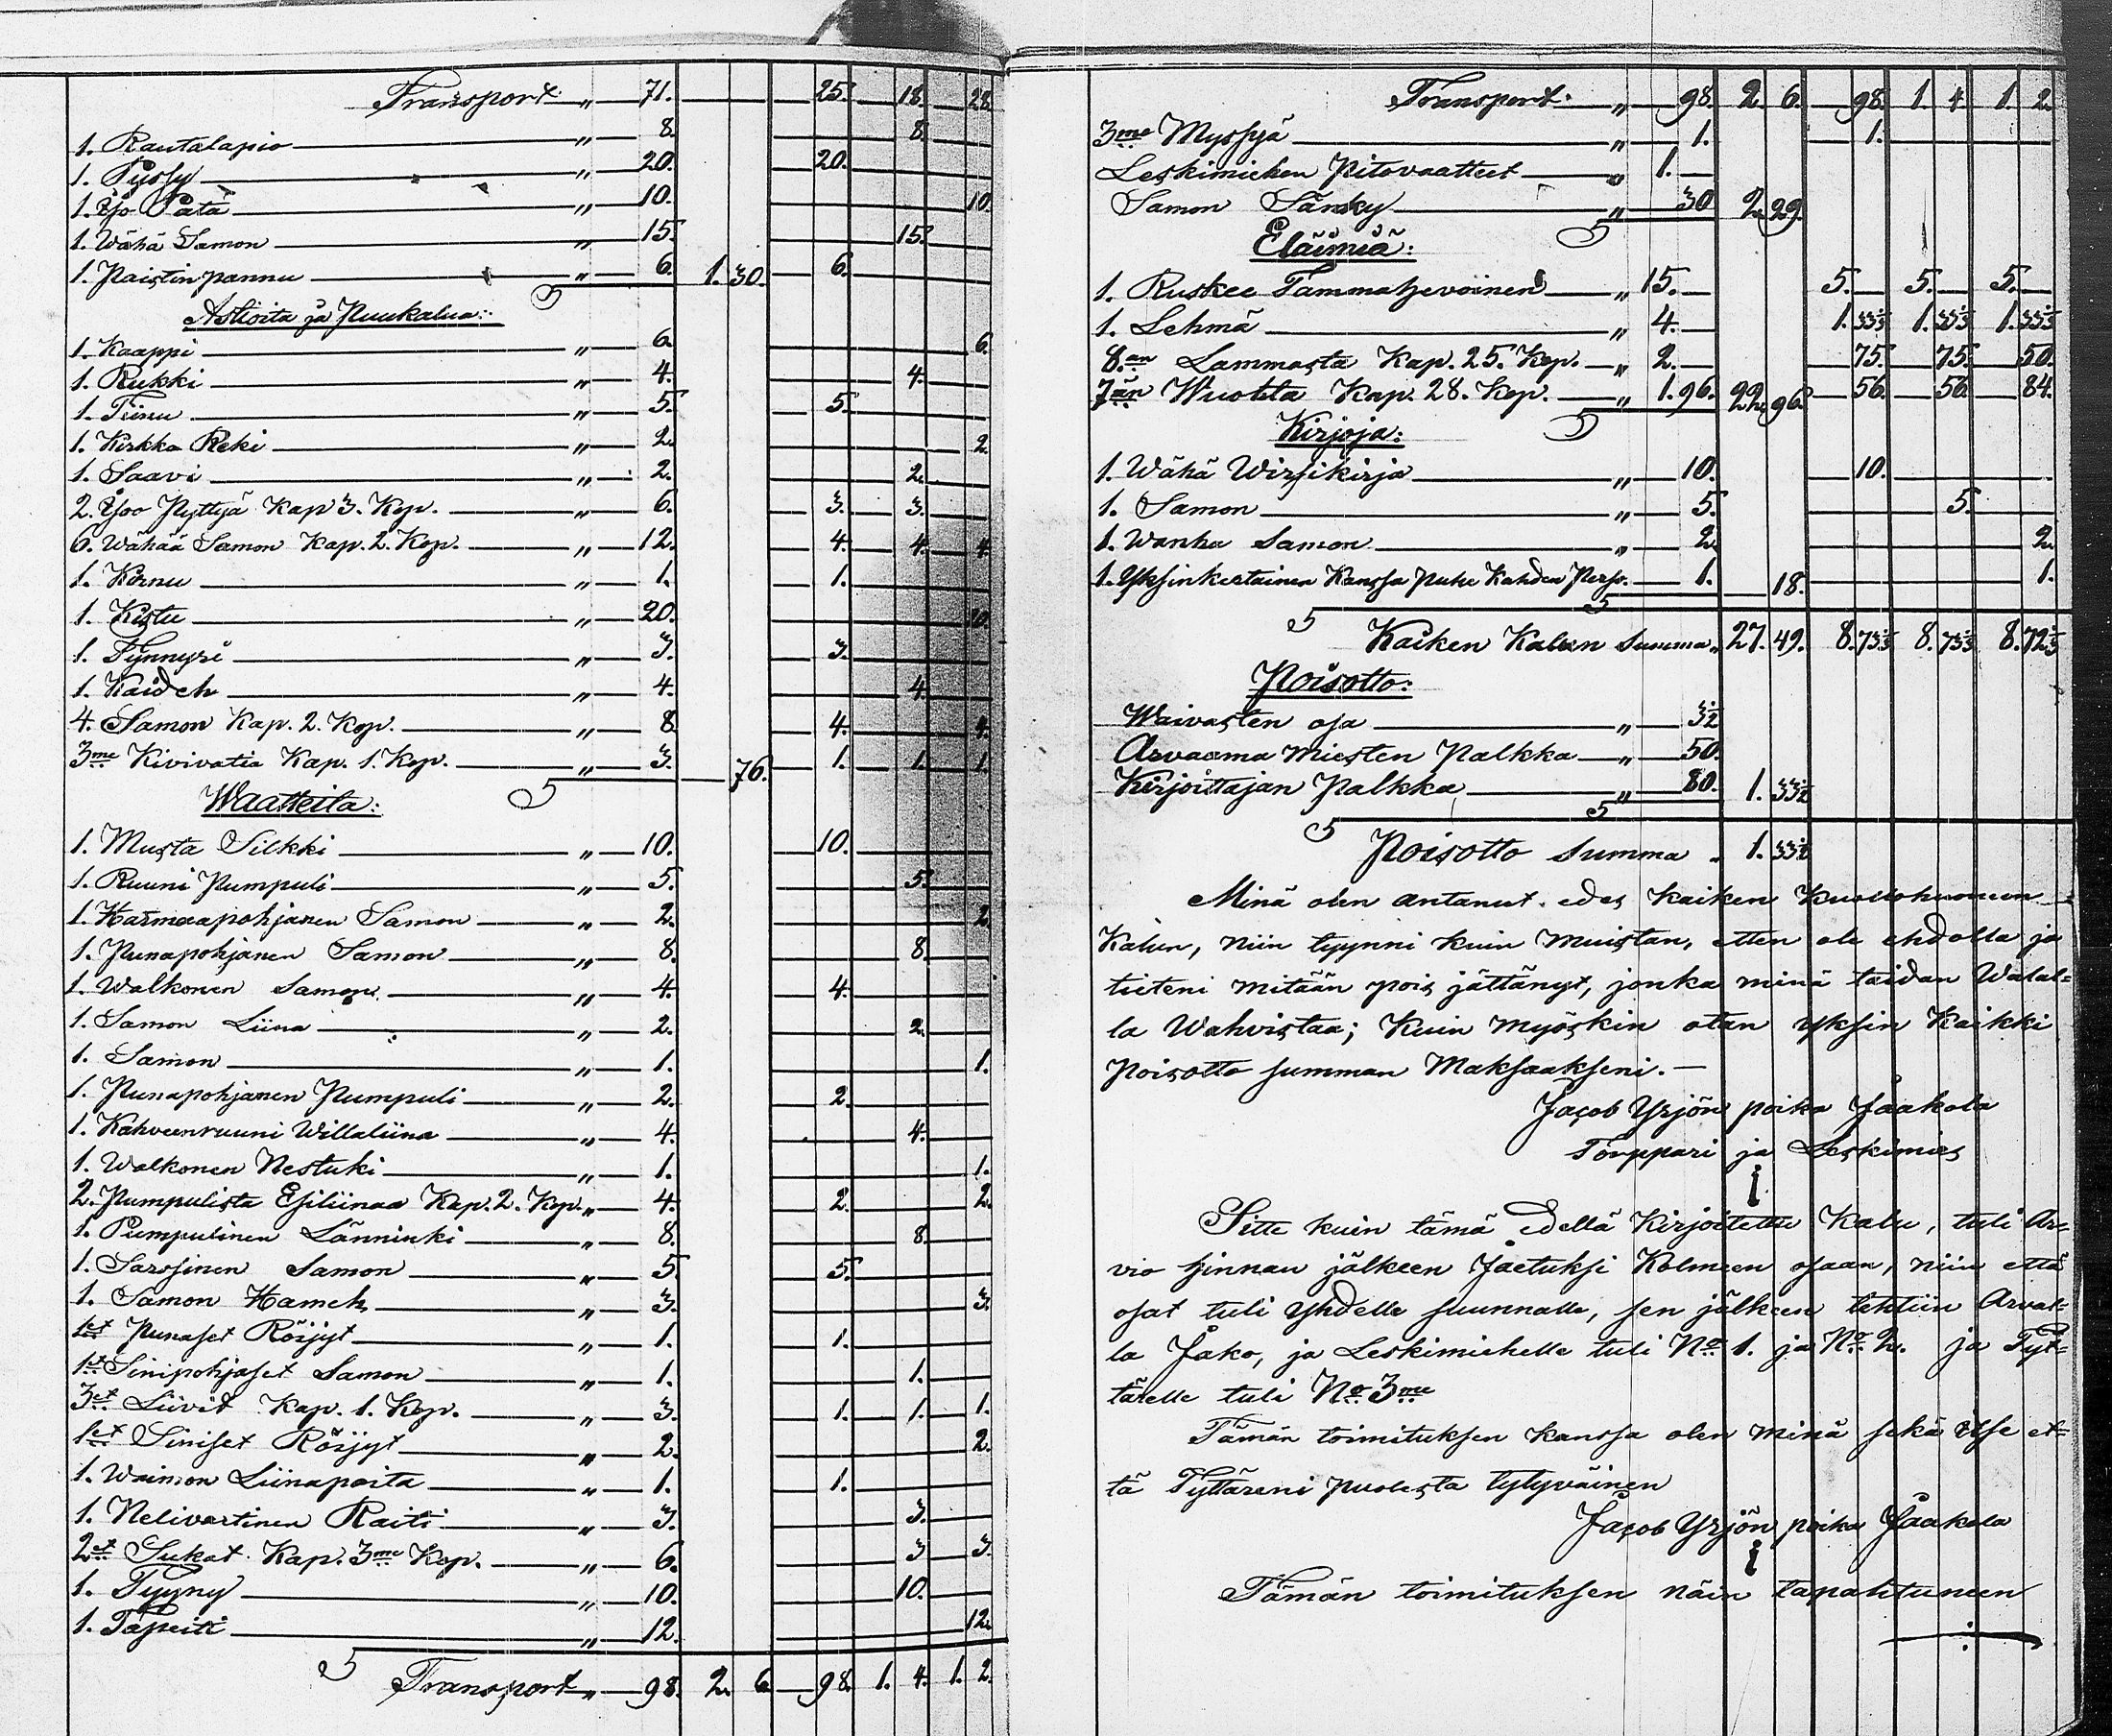 Transport „ 71. 25. 18. 28.
1. Rautalapio „ 8. 8.
1. Pyssy „ 20. 20.
1. Iso Pata „ 10. 10.
1. Wähä Samon „ 15. 15.
1. Paistinpannu „ 6. 1. 30. 6.
Astioita ja Puukalua:
1. Kaappi „ 6. 6.
1. Rukki „ 4. 4.
1. Tiinu „ 5. 5.
1. Kirkko Reki „ 2. 2.
1. Saavi „ 2. 2.
2. Isoo Pyttyä Kap 3. Kop. „ 6. 3. 3.
6. Wähää Samon Kap. 2. Kop. „ 12. 4. 4. 4.
1. Kornu „ 1. 1.
1. Kistu „ 20.
1. Tynnyri „ 3. 3.
1. Kaideh „ 4. 4.
4. Samon Kap. 2. Kop. „ 8 4. 4.
3me Kivivatia Kap. 1. Kop. „ 3. 76. 1. 1. 1.
Waatteita:
1. Musta Silkki „ 10. 10.
1. Ruuni Pumpuli „ 5. 5.
1. Harmaapohjanen Samon „ 2. 2.
1. Punapohjanen Samon „ 8. 8.
1. Walkonen Samon „ 4. 4.
1. Samon Liina „ 2. 2.
1. Samon „ 1. 1.
1. Punapohjanen Pumpuli „ 2. 2.
1. Kahveenruuni Willaliina „ 4. 4.
1. Walkonen Nestuki „ 1. 1.
2. Pumpulista Esiliinaa Kap. 2. Kop. „ 4. 2. 2.
1. Pumpulinen Länninki „ 8. 8.
1. Sarssinen Samon „ 5. 5.
1. Samon Hameh „ 3. 3.
1et Punaset Röijyt „ 1. 1.
1et Sinipohjaset Samon „ 1. 1.
3et Liivit Kap. 1. Kop. „ 3. 1. 1. 1.
1et Siniset Röijyt „ 2. 2.
1. Waimon Liinapaita „ 1. 1.
1. Nelivartinen Raiti „ 3. 3.
2et Sukat Kap. 3me Kop. „ 6. 3 3.
1. Tyyny „ 10. 10.
1. Täpeiti „ 12. 12.
Transport „ 98. 2. 6. 98. 1. 4. 1. 2.
Transport „ 98. 2. 6. 98. 1. 4. 1. 2.
3me Myssyä „ 1. 1.
Leskimiehen Pitovaatteet „ 1.
Samon Sänky „ 30 2. 29.
Eläimiä:
1. Ruskee Tammahevoinen „ 15. 5. 5. 5.
1. Lehmä „ 4. 1. 33⅓ 1. 33⅓ 1. 33⅓
8.an Lammasta Kap. 25. Kop. „ 2. 75. 75. 50.
7än Wuohta Kap. 28. Kop. „ 1. 96. 22. 96. 56. 56. 84.
Kirjoja:
1. Wähä Wirsikirja „ 10. 10.
1. Samon „ 5. 5.
1. Wanha Samon „ 2. 2.
1. Yksinkertainen Kanssa Puhe Kahden Perso. 1. 18. 1.
Kaiken Kalun Summa „ 27. 49. 8. 73⅓ 8. 73⅓ 8. 72⅓
Poisotto:
Waivasten osa „ 3½
Arvaama Miesten Palkka „ 50.
Kirjoittajan Palkka „ 80. 1. 33½
Poisotto Summa „ 1. 33½
Minä olen antanut edes kaiken Kuollohuoneen
Kalun, niin tyynni kuin Muistan, etten ole ehdolla ja
tieteni mitään pois jättänyt, jonka minä taidan Walal-
la Wahvistaa; Kuin myöskin otan yksin Kaikki
Poisotto summan Maksaakseni. —
Jacob Yrjön poika Jaakola
Torppari ja Leskimies
Sitte kuin tämä edellä Kirjoitettu Kalu, tuli Ar-
vio hinnan jälkeen Jaetuksi Kolmeen osaan, niin että
osat tuli yhdelle suunnalle, sen jälkeen tehtiin Arval-
la Jako, ja Leskimiehelle tuli No 1. ja No 2. ja Tyt-
tärelle tuli No 3me
Tämän toimituksen kanssa olen minä sekä itse et-
tä Tyttäreni Puolesta tytyväinen
Jacob Yrjön poika Jaakola
Tämän toimituksen näin tapahtuneen